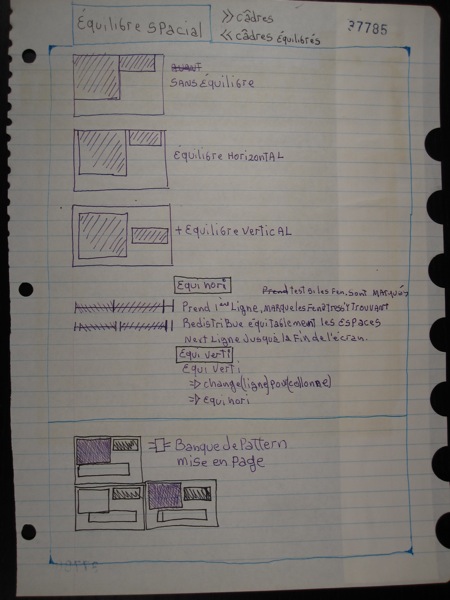 Équilibre Spacial
>> câdres
<< câdres équilibrés
37785
Avant
Sans Équilibre
Équilibre Horizontal
+ Équilibre Vertical
Equi hori
Prend test si les fen. sont marqués
Prend 1ère Ligne, marque les fenêtres s'y trouvant
Redistribue équitablement les espaces
Next Ligne jusqu'à la fin de l'écran.
Equi verti
Equi verti
=> change (ligne) pour (collonne)
=> Equi hori
Banque de Pattern
mise en page